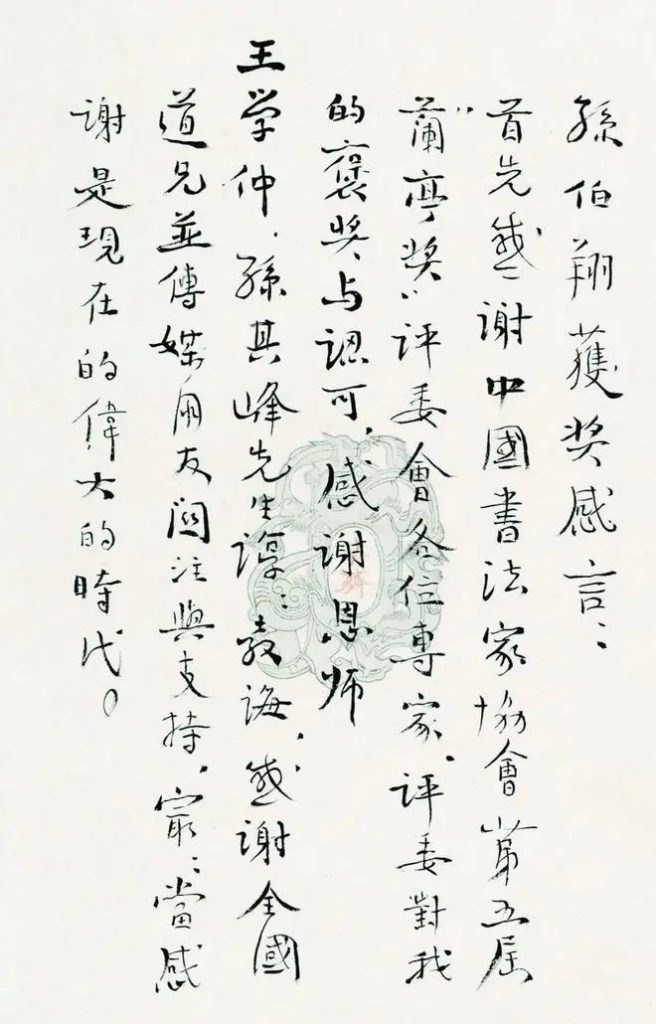 孫伯翔獲奖感言：
首先感謝中國書法家協會第五届
“蘭亭奖”評委會各位專家、評委對我
的褒奖与認可，感謝恩师
王学仲、孫其峰先生諄：教誨，感謝全國
道兄並傳媒朋友関注與支持，最：當感
謝是現在的偉大的時代。